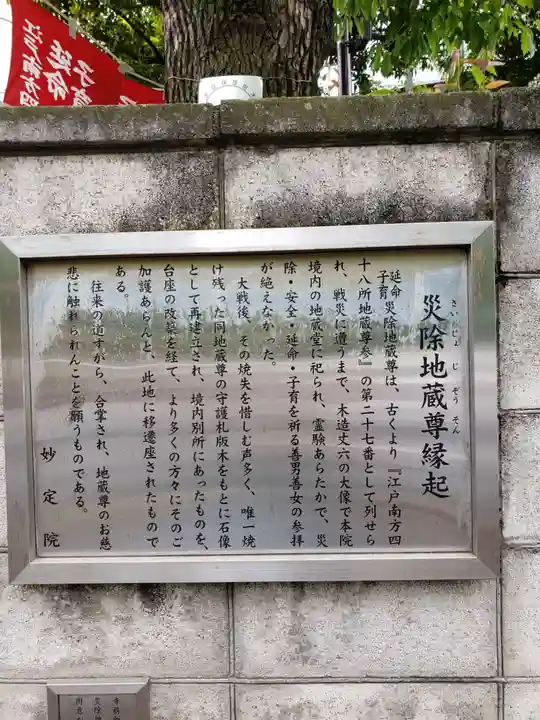 災除地蔵尊縁起
さいじょ じ ぞう そん
延命
子育
災除地蔵尊は、古くより『江戸南方四
十八所地蔵尊参』の第二十七番として列せら
れ、戦災に遭うまで、木造丈六の大像で本院
境内の地蔵堂に祀られ、霊験あらたかで、災
除・安全・延命・子育を祈る善男善女の参拝
が絶えなかった。
大戦後、その焼失を惜しむ声多く、唯一焼
け残った同地蔵尊の守護札版木をもとに石像
として再建立され、境内別所にあったものを、
台座の改築を経て、より多くの方々にそのご
加護あらんと、此地に移遷座されたもので
ある。
往来の道すがら、合掌され、地蔵尊のお慈
悲に触れられんことを願うものである。
妙定院
子育
延命
江戸南方四